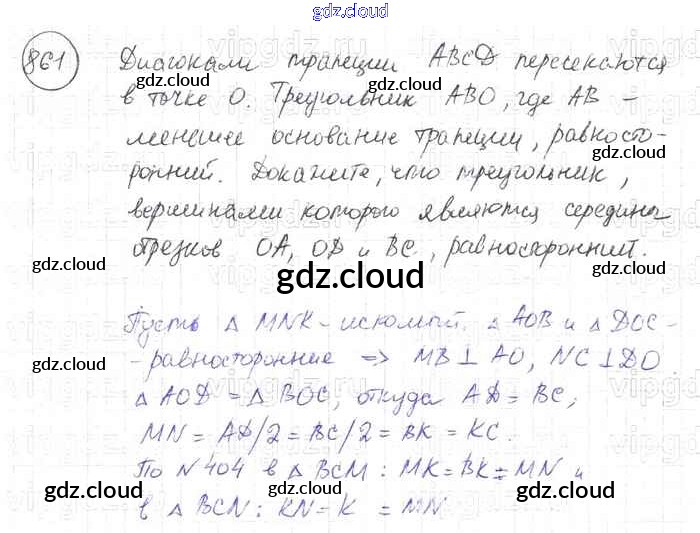 gdz.cloud
861 Диагонали трапеции ABCD пересекаются
в точке O. Треугольник ABO, где AB –
меньшее основание трапеции, равносто-
ронний. Докажите, что треугольник,
вершинами которого являются середины
отрезков OA, OD и BC, равносторонний.
gdz.cloud
Пусть △ MNK – искомый. △ AOB и △ DOC –
– равносторонние => MB ⊥ AO, NC ⊥ DO.
△ AOD = △ BOC, откуда AD = BC,
MN = AD/2 = BC/2 = BK = KC.
По N 404 в △ BCM : MK = BK = MN и
в △ BCN : KN = K = MN